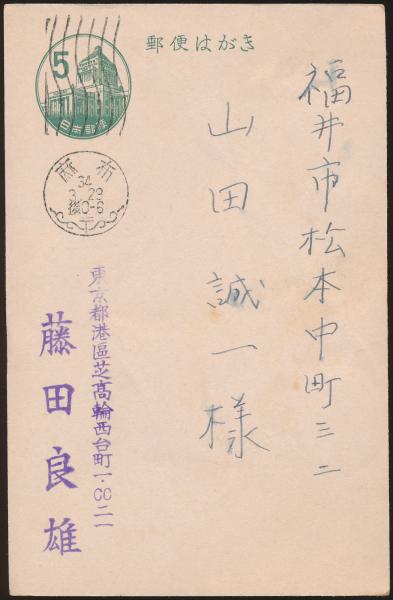 郵便はがき
5
日本郵便
麻布
34
3.29
後0-6
福井市松本中町三二
山田誠一様
東京都港區芝高輪西台町一・〇〇二一
藤田良雄